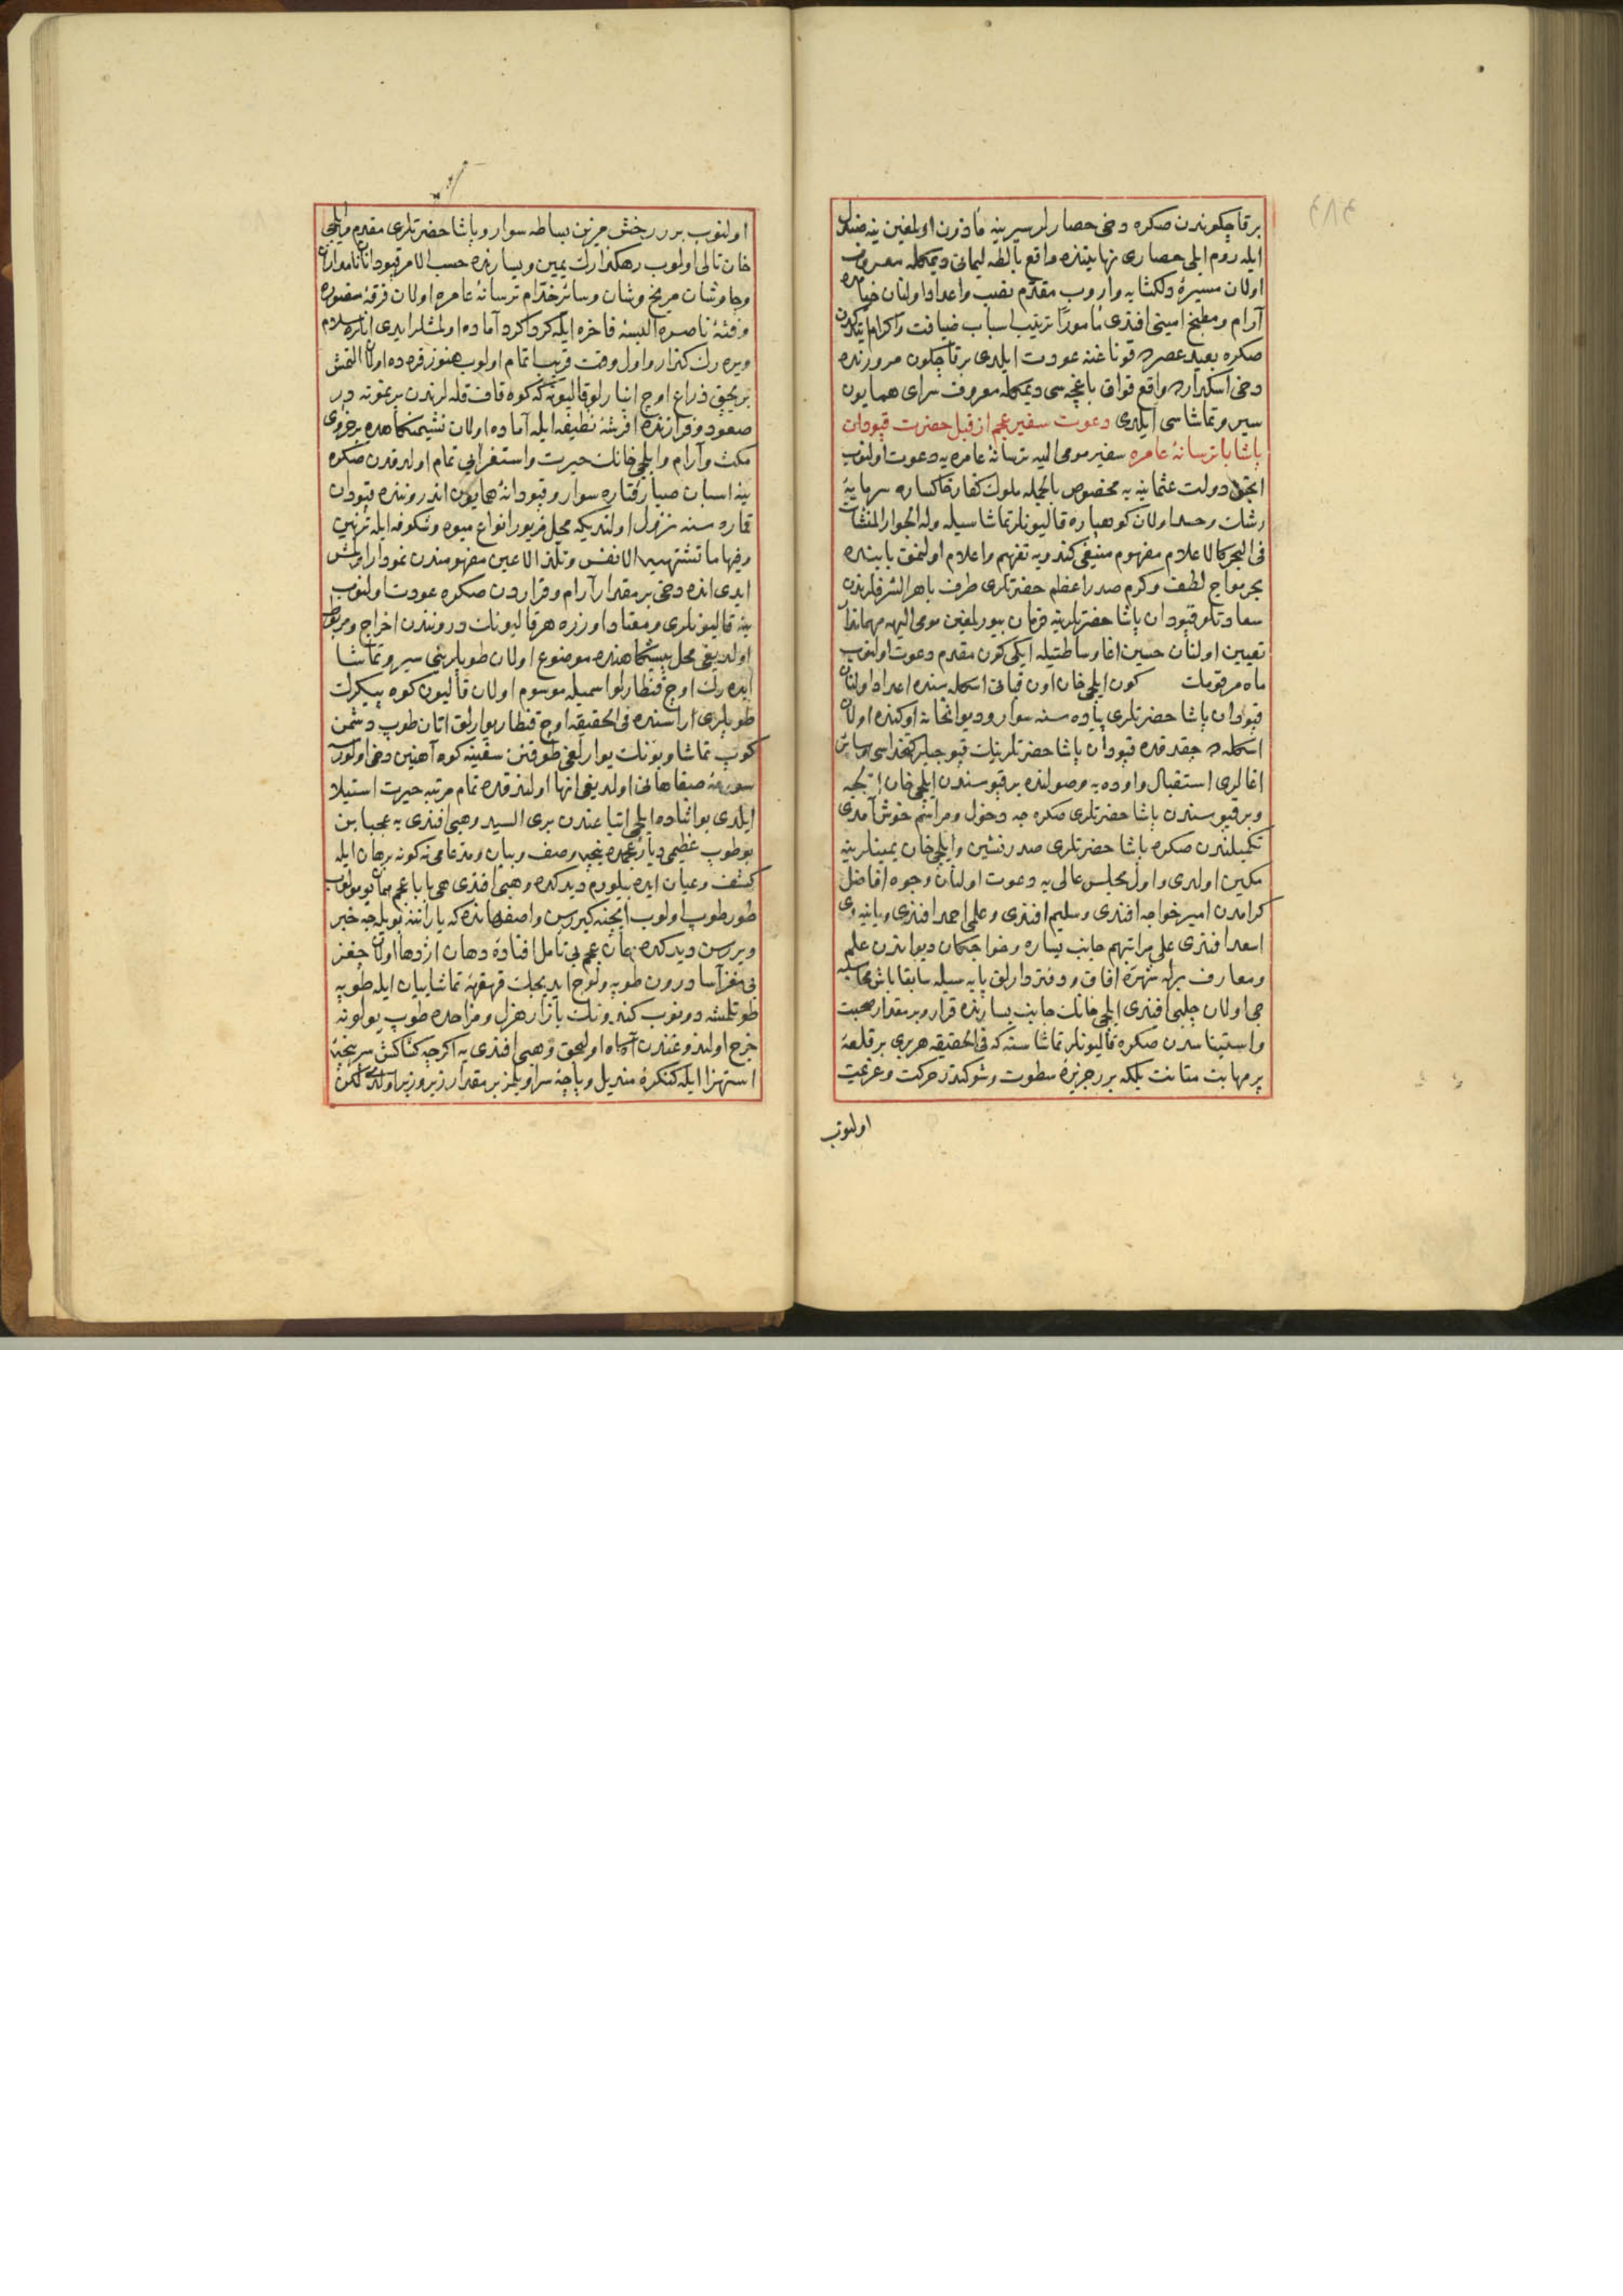 ٤٨٤
بر قاچ كوندن صكره دخی حصارلر سیرینه مأذون اولمغین ینه
ایله روم ایلی حصاری نهایتنده واقع بالطه لیمانی دیمكله معروف
اولان مسیرهٔ دلكشایه واروب مقدم نصب واعداد اولنان
آرام ومطبخ امینی افندی مأمورا ترتیب اسباب ضیافت واكرام
صكره بعید عصرده قوناغنه عودت ایلدی بر قاچ كون مرورنده
دخی اسكدارده واقع قواق باغچه سی دیمكله معروف سرای همایون
سیر وتماشاسی ایلدی دعوت سفیر عجم از قبل حضرت قپودان
پاشا با ترسانهٔ عامره سفیر مومی الیه ترسانهٔ عامره یه دعوت اولنوب
انجق دولت عثمانیه یه مخصوص بالجمله ملوك كفار خاكساره سرمایهٔ
رشك وحسد اولان كوهپاره قالیونلر تماشاسیله وله الجوار المنشآت
فی البحر كالاعلام مفهوم منیفی كندویه تفهیم واعلام اولنمق بابنده
بحر مواج لطف وكرم صدر اعظم حضرتلری طرف باهر الشرفلرندن
سعادتلو قپودان پاشا حضرتلرینه فرمان بیورلمغین مومی الیهه مهماندار
تعیین اولنان حسین اغا وساطتیله ایكی كون مقدم دعوت اولنوب
ماه مرقومك كون ایلچی خان اون قپانی اسكله سنده اعداد اولنان
قپودان پاشا حضرتلری پیاده سنه سوار ودیوانخانه اوكنده اولان
اسكله ده چقدقده قپودان پاشا حضرتلرینك قپوجیلر كتخداسی وسائر
اغالری استقبال واوده یه وصولنده بر قپوسندن ایلچی خان
وبر قپوسندن پاشا حضرتلری صكره جه دخول ومراسم خوش آمدی
تكمیلندن صكره پاشا حضرتلری صدرنشین وایلچی خان یمینلرینه
مكین اولدی واول مجلس عالی یه دعوت اولنان وجوه افاضل
كرامدن امیر خواجه افندی وسلیم افندی وعلمی احمد افندی
اسعد افندی علی مراتبهم جانب یساره وخواجكان دیواندن علم
ومعارف برله شهرهٔ افاق ودفتردارلق پایه سیله سابقا باش محاسبه
جی اولان چلبی افندی ایلچی خانك جانب یسارنده قرار وبر مقدار صحبت
واستیناسدن صكره قالیونلر تماشاسنه كه فی الحقیقه هربری بر قلعهٔ
پرمهابت متانت بلكه برر جزیرهٔ سطوت وشوكتدر حركت وعزیمت
اولنوب
اولنوب برر رخش مزین بساطه سوار وپاشا حضرتلری مقدم وایلچی
خان تالی اولوب رهكذارك یمین ویسارنده حسب الامر قپودانان نامداران
وچاوشان مریخ وشان وسائر خدام ترسانهٔ عامره اولان فرقهٔ منصوره
وفئهٔ ناصره البسهٔ فاخره ایله كرداكرد آماده اولمشلر ایدی انلره سلام
ویره رك كذار واول وقت قریبا تمام اولوب هنوز قره ده اولان التمش
بر بچق ذراع اوج انبارلو قالیونه كه كوه قاف قله لرندن بر نمونه در
صعود وفرازنده افرشهٔ نظیفه ایله آماده اولان نشیمنكاهده
مكث وآرام وایلچی خانك حیرت واستغرابی تمام اولدقدن صكره
ینه اسبان صبا رفتاره سوار وقپودانهٔ همایون اندروننده قپودان
قماره سنه نزول اولندیكه محل مزبور انواع میوه وشكوفه ایله تزیین
وفیها ما تشتهیه الانفس وتلذ الاعین مفهومندن نمودار اولمش
ایدی انده دخی بر مقدار آرام وقراردن صكره عودت اولنوب
ینه قالیونلری ومعتاد اوزره هر قالیونك دروننندن اخراج
اولدیغی محل پیشكاهنده موضوع اولان طوپلرینی سیر وتماشا
ایده رك اوچ قنطارلو اسمیله موسوم اولان قالیون كوه پیكرك
طوپلری اراسنده فی الحقیقه اوچ قنطار یوارلق اتان طوپ دشمن
كوب تماشا وبونك یوارلغی طوقنن سفینه كوه آهنین دخی اولورسه
اولدیغی انها اولندقده تمام مرتبه حیرت استیلا
ایلدی بو اثناده ایلچی اتباعندن بری السید وهبی افندی یه عجبا بن
بو طوپ عظیمی دیار عجمده نیجه وصف وبیان ومدعامی نه كونه برهان ایله
كشف وعیان ایده بیلورم دیدكده وهبی افندی
طور طوپ اولوب ایچنه كیررسن واصفهانده كه یارانه بویله جه خبر
ویررسن دیدكده همان عجم بی تأمل افتادهٔ دهان اژدها اولان
بی مغز آسا درون طوپه ولوج ایدیجك قهقههٔ تماشاییان ایله طوپه
طوتلمشه دونوب كندونك بازار هزل ومزاحده طوپ یولونه
خرج اولندوغندن آكاه اولیجق وهبی افندی یه اكرچه كشاكش سرپنجهٔ
استهزا ایله كنكرهٔ مندیل وپاچهٔ سراویلمز بر مقدار زیر وزبر اولدی لكن